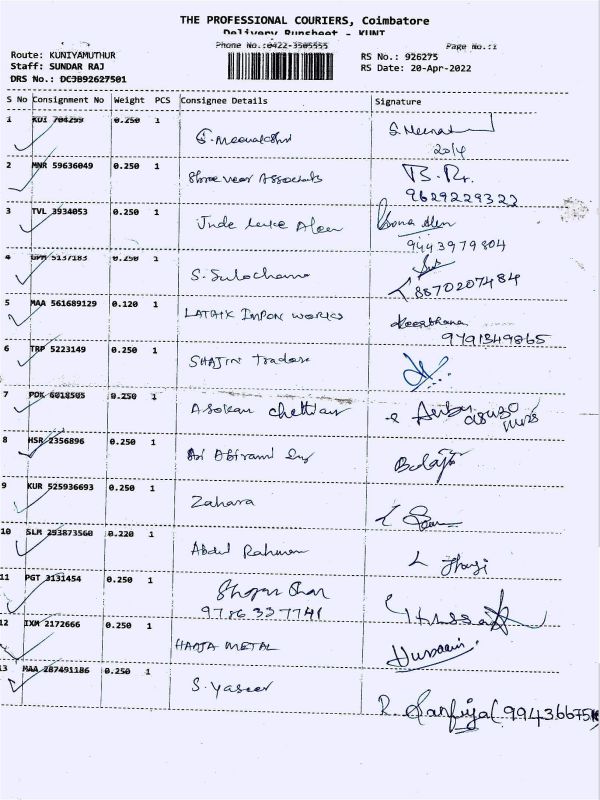 THE PROFESSIONAL COURIERS, Coimbatore
Delivery Runsheet - KUNI
Phone No.:0422-3505555 Page No.:1
Route: KUNIYAMUTHUR RS No.: 926275
Staff: SUNDAR RAJ RS Date: 20-Apr-2022
DRS No.: DCJB92627501
S No Consignment No Weight PCS Consignee Details Signature
1 KDI 704299 0.250 1 S. Meenakshi S. Meena
2 MNR 59636049 0.250 1 Shree veer Associats
9629229322
3 TVL 3934053 0.250 1 Jude Luke Alen
9443979804
4 5137183 0.250 1 S. Sulochana
8870207484
5 MAA 561689129 0.120 1 LATHIK IMPON WORKS Keerthana
9791549865
6 TRP 5223149 0.250 1 SHAJIN Traders
7 PDK 6018505 0.250 1 Asokan chettiar
8 HSR 2356896 0.250 1 Sri Abirami Balaji
9 KUR 525936693 0.250 1 Zahara
10 SLM 293873560 0.220 1 Abdul Rahman
11 PGT 3131454 0.250 1
9786337741
12 IXM 2172666 0.250 1 HAAJA METAL Hussain
13 MAA 287491186 0.250 1 S. Yaseer